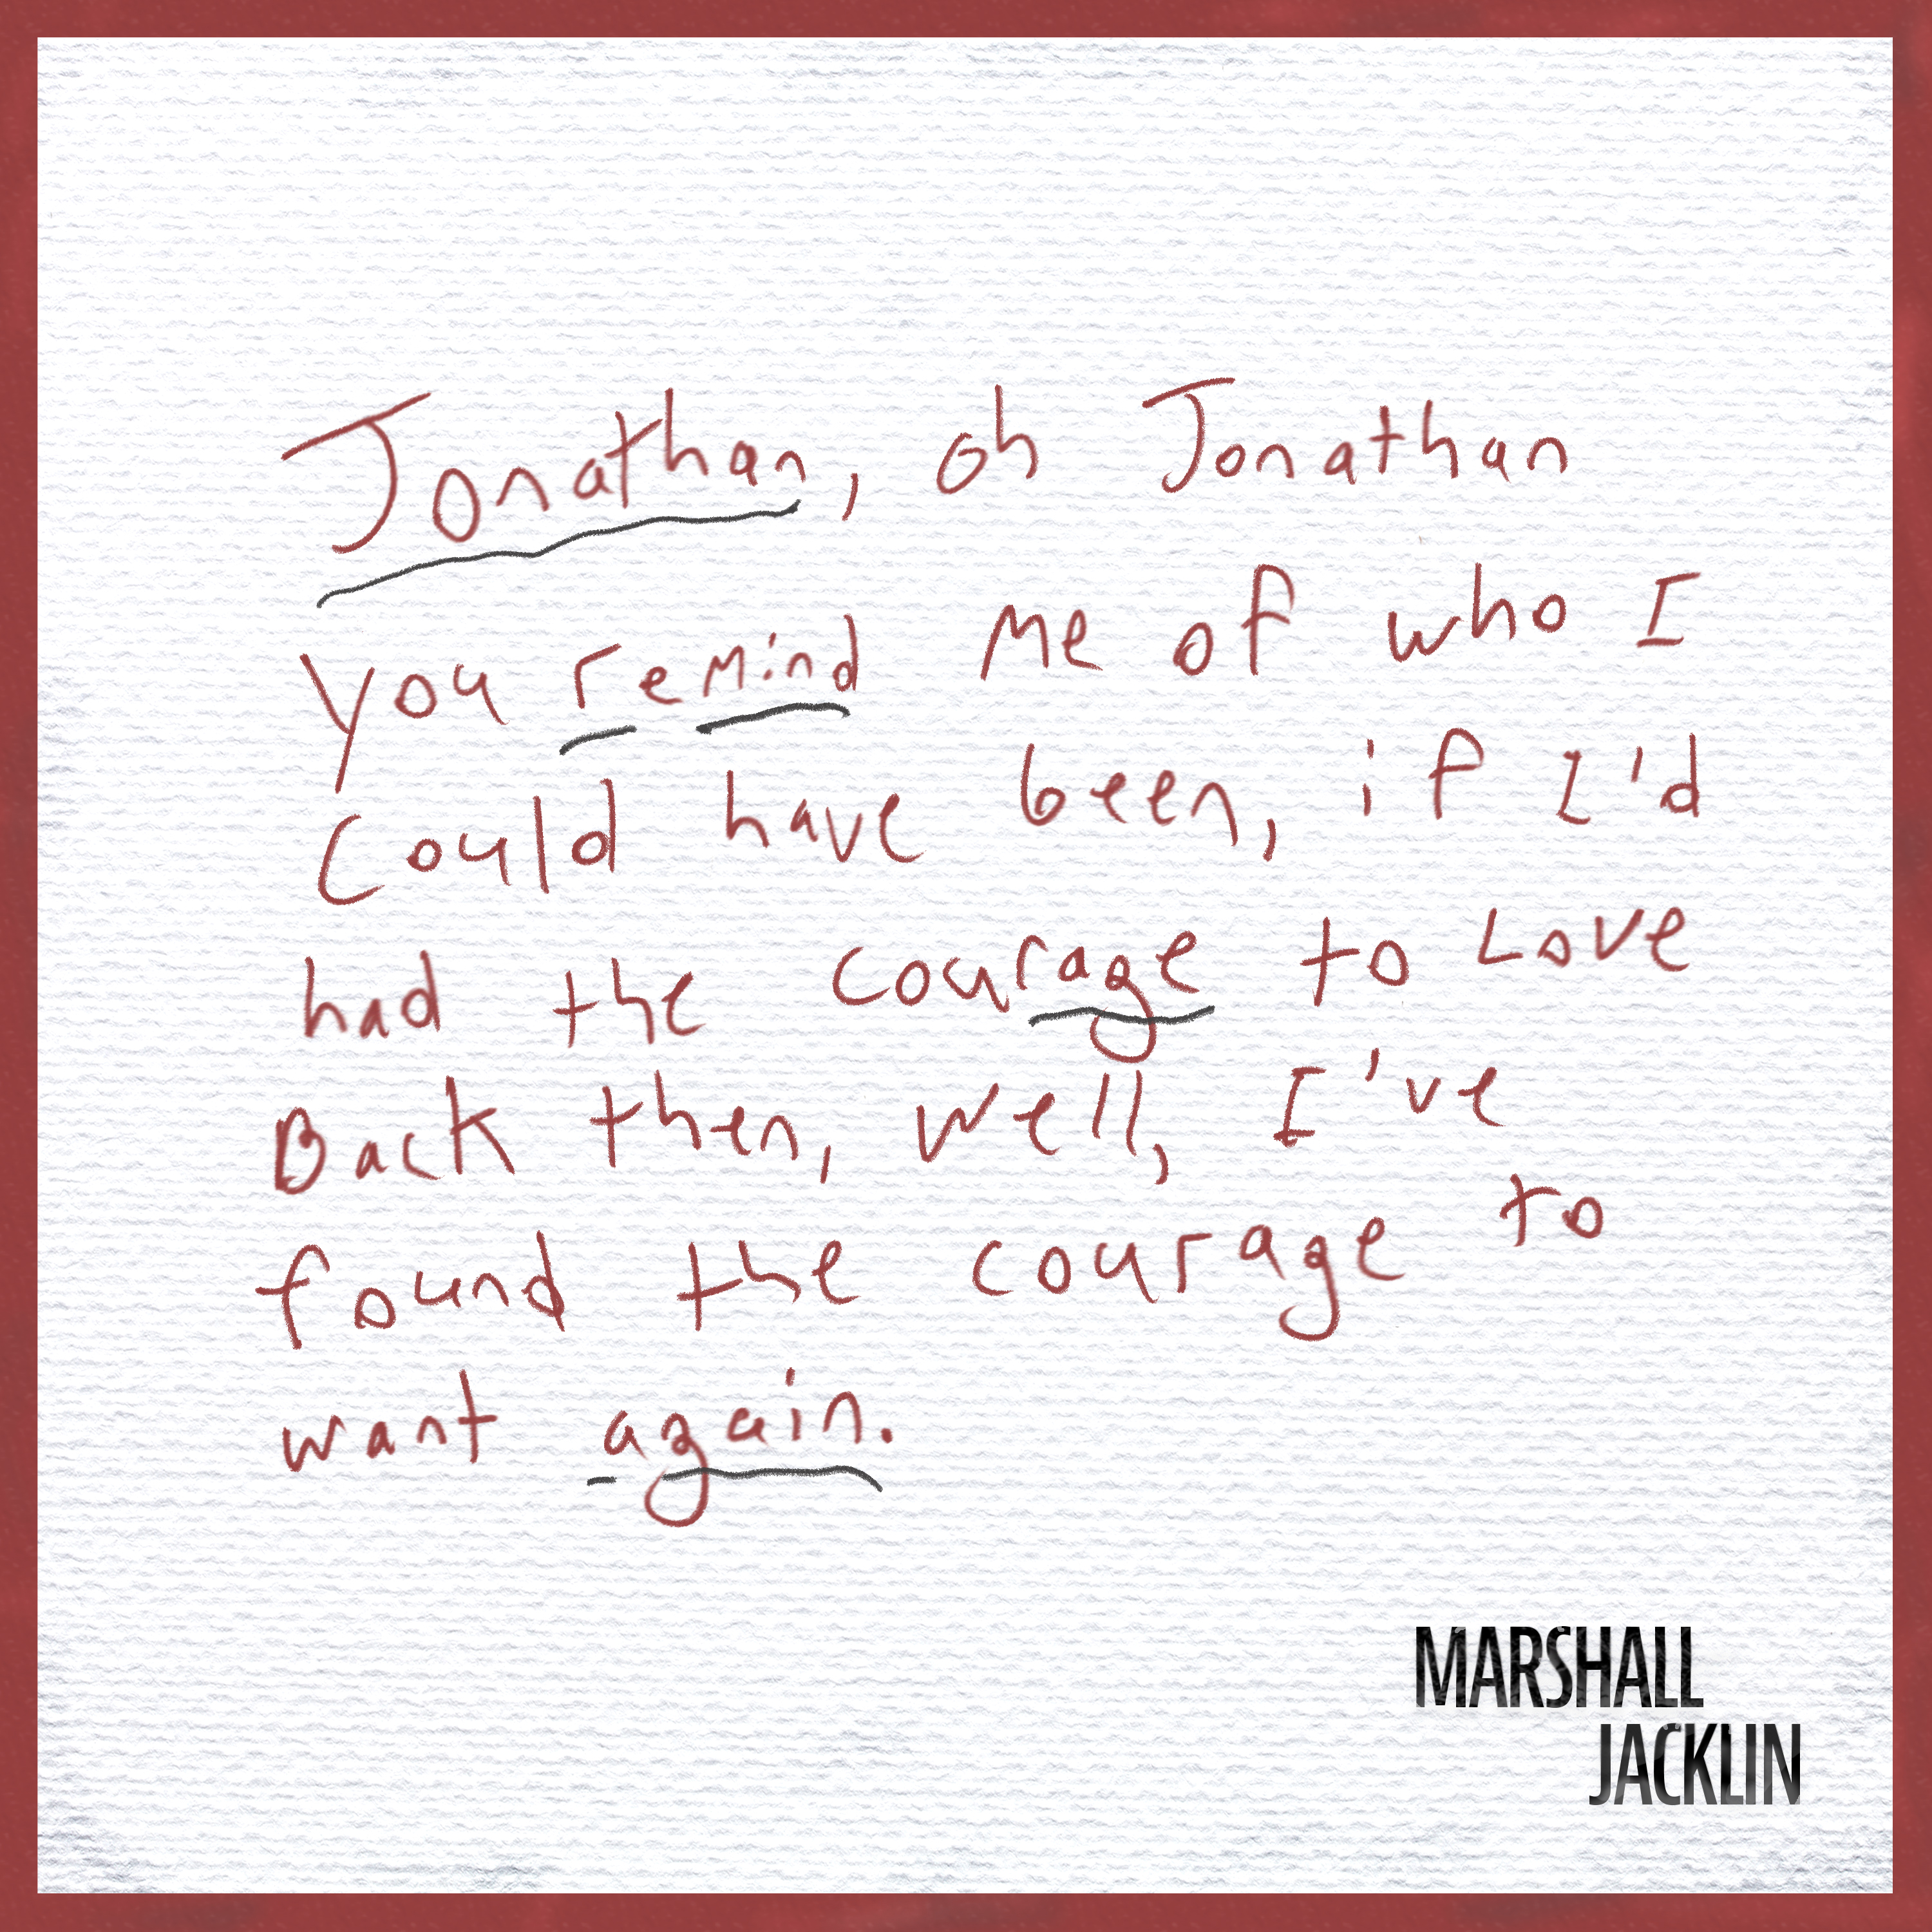 Jonathan, oh Jonathan
you remind me of who I
could have been, if I'd
had the courage to Love
Back then, well, I've
found the courage to
want again.
MARSHALL
JACKLIN